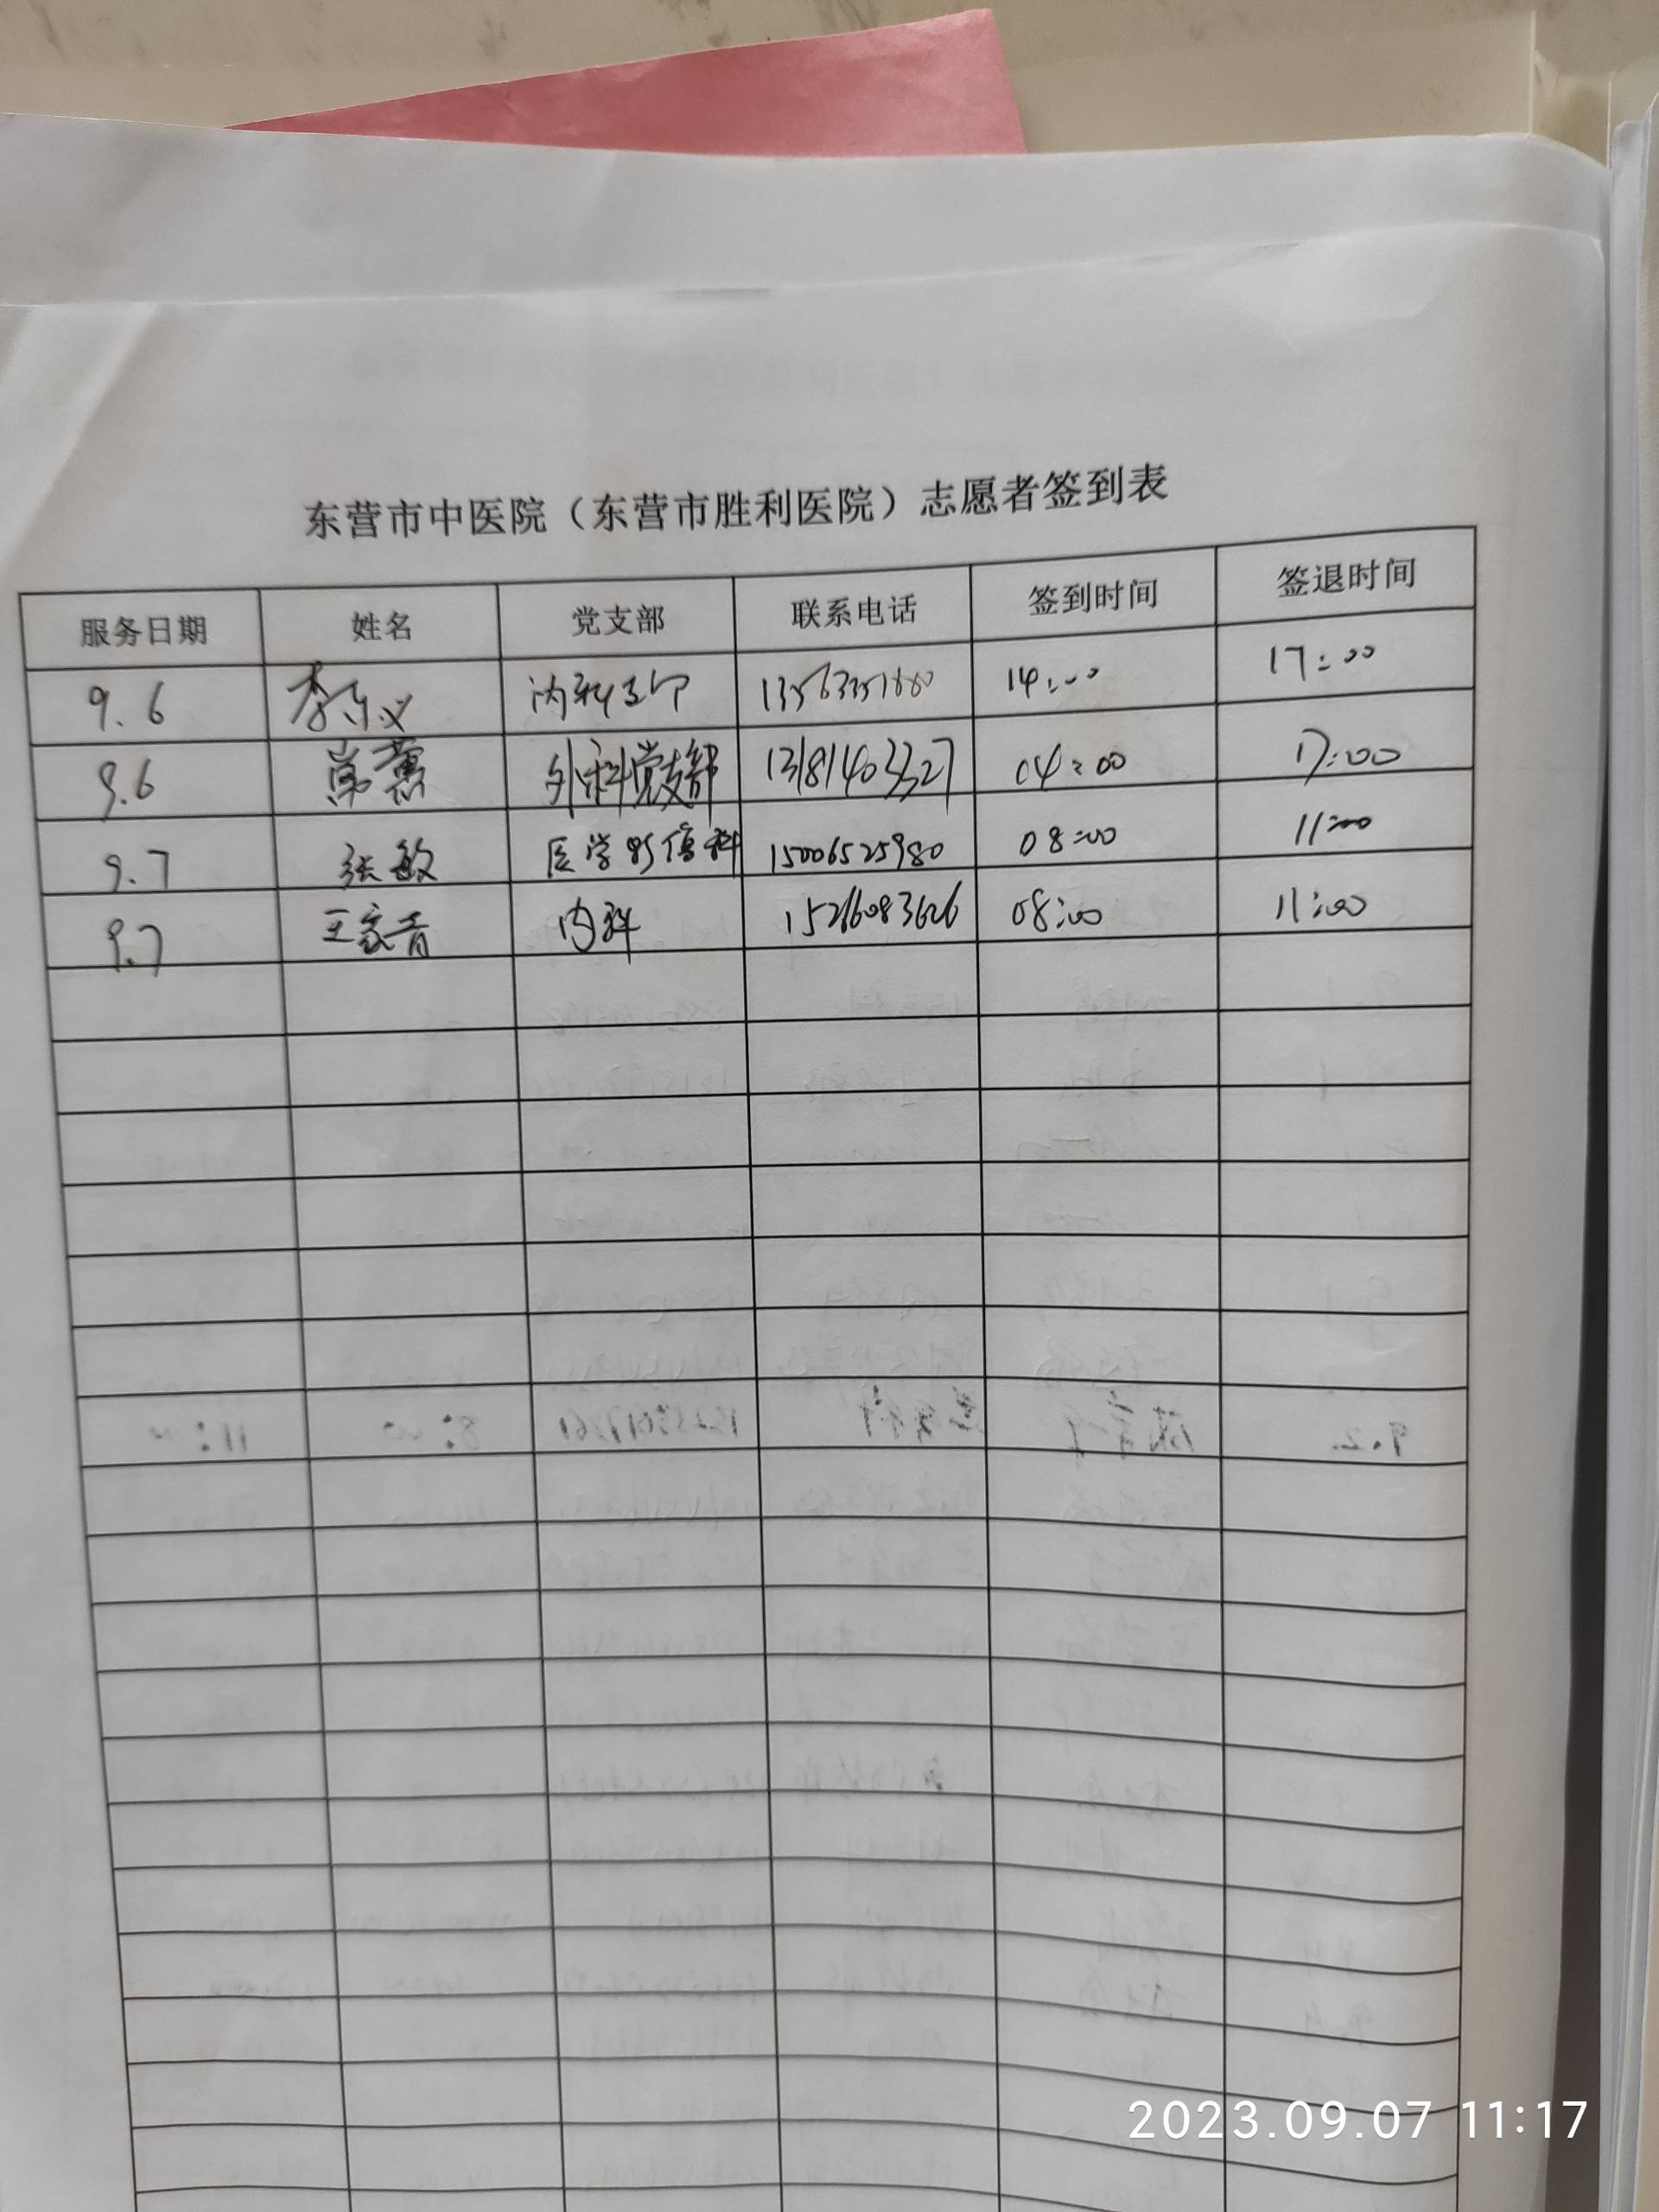 东营市中医院（东营市胜利医院）志愿者签到表
服务日期 姓名 党支部 联系电话 签到时间 签退时间
9.6 李 14:00 17:00
9.6 外科党支部 13181403327 04:00 17:00
9.7 张敏 医学影像科 15006525980 08:00 11:00
9.7 王家青 内科 08:00 11:00
2023.09.07 11:17